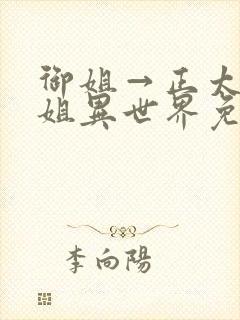 御姐→正太
姐異世界免
李向陽